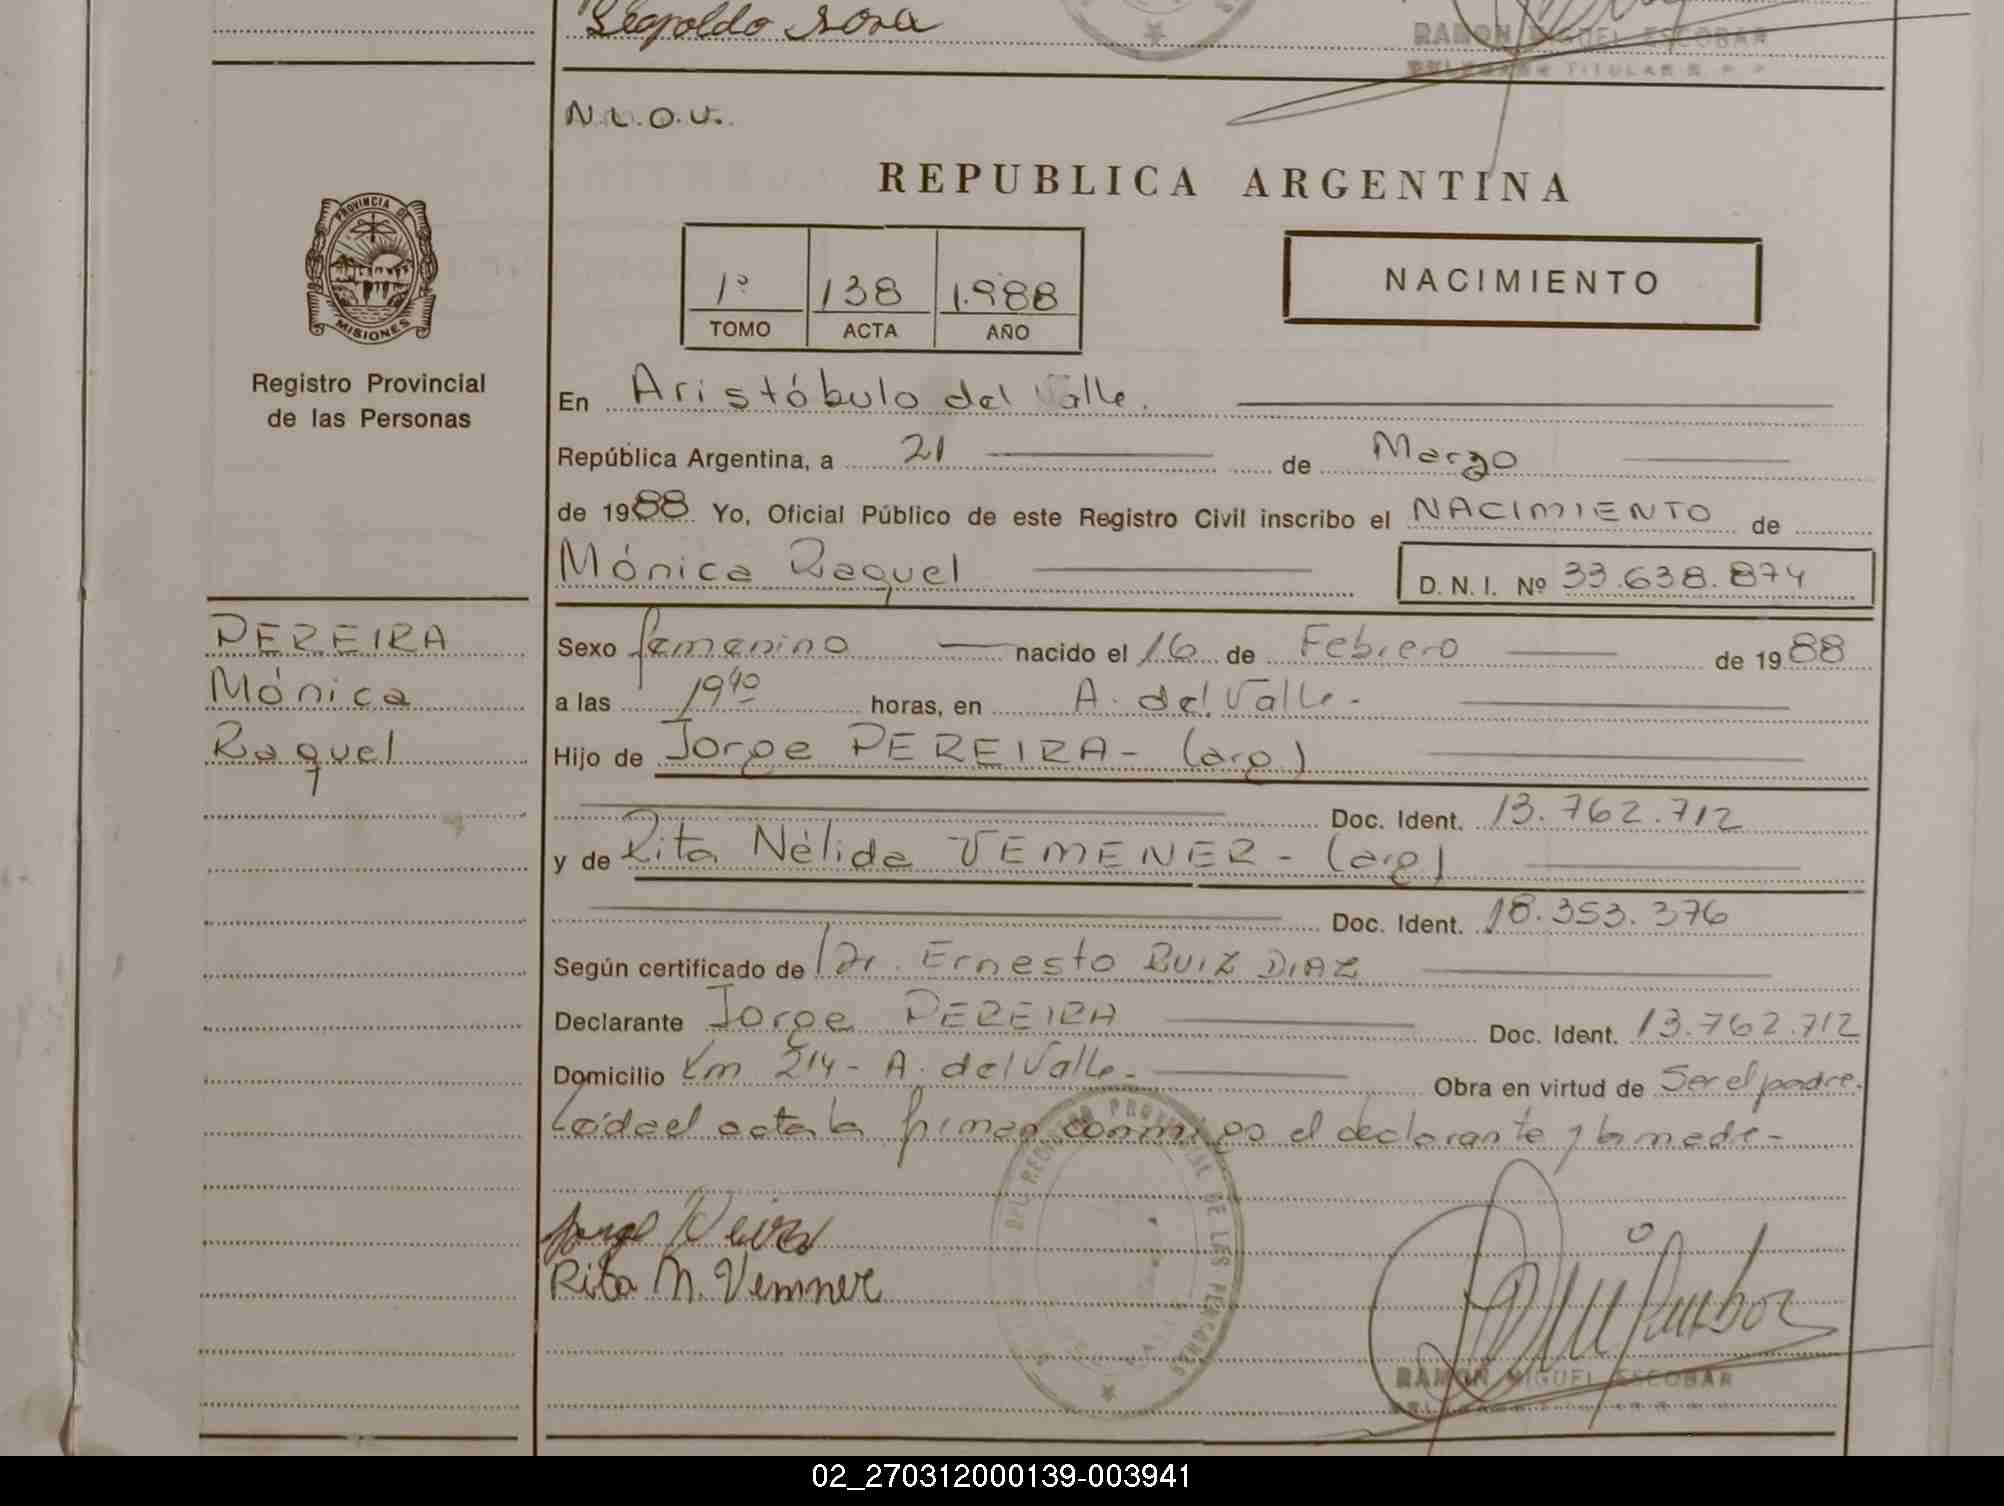 Leopoldo Sosa
RAMON MIGUEL ESCOBAR
TITULAR
N.L.O.U.
REPUBLICA ARGENTINA
PROVINCIA DE
MISIONES
1º 138 1.988
TOMO ACTA AÑO
NACIMIENTO
Registro Provincial
de las Personas
En Aristóbulo del Valle.
República Argentina, a 21 de Marzo
de 1988 Yo, Oficial Público de este Registro Civil inscribo el NACIMIENTO de
Mónica Raquel D. N. I. Nº 33.638.874
PEREIRA
Mónica
Raquel
Sexo femenino nacido el 16 de Febrero de 1988
a las 19 40 horas, en A. del Valle -
Hijo de Jorge PEREIRA - (arg)
Doc. Ident. 13.762.712
y de Rita Nélida VEMENER - (arg)
Doc. Ident. 18.353.376
Según certificado de Dr. Ernesto RUIZ DIAZ
Declarante Jorge PEREIRA Doc. Ident. 13.762.712
Domicilio Km 214 - A. del Valle - Obra en virtud de Ser el padre.
Leída el acta la firman conmigo el declarante y la madre -
DEL REGISTRO PROVINCIAL DE LAS PERSONAS
Rita N. Vemner
RAMON MIGUEL ESCOBAR
02_270312000139-003941